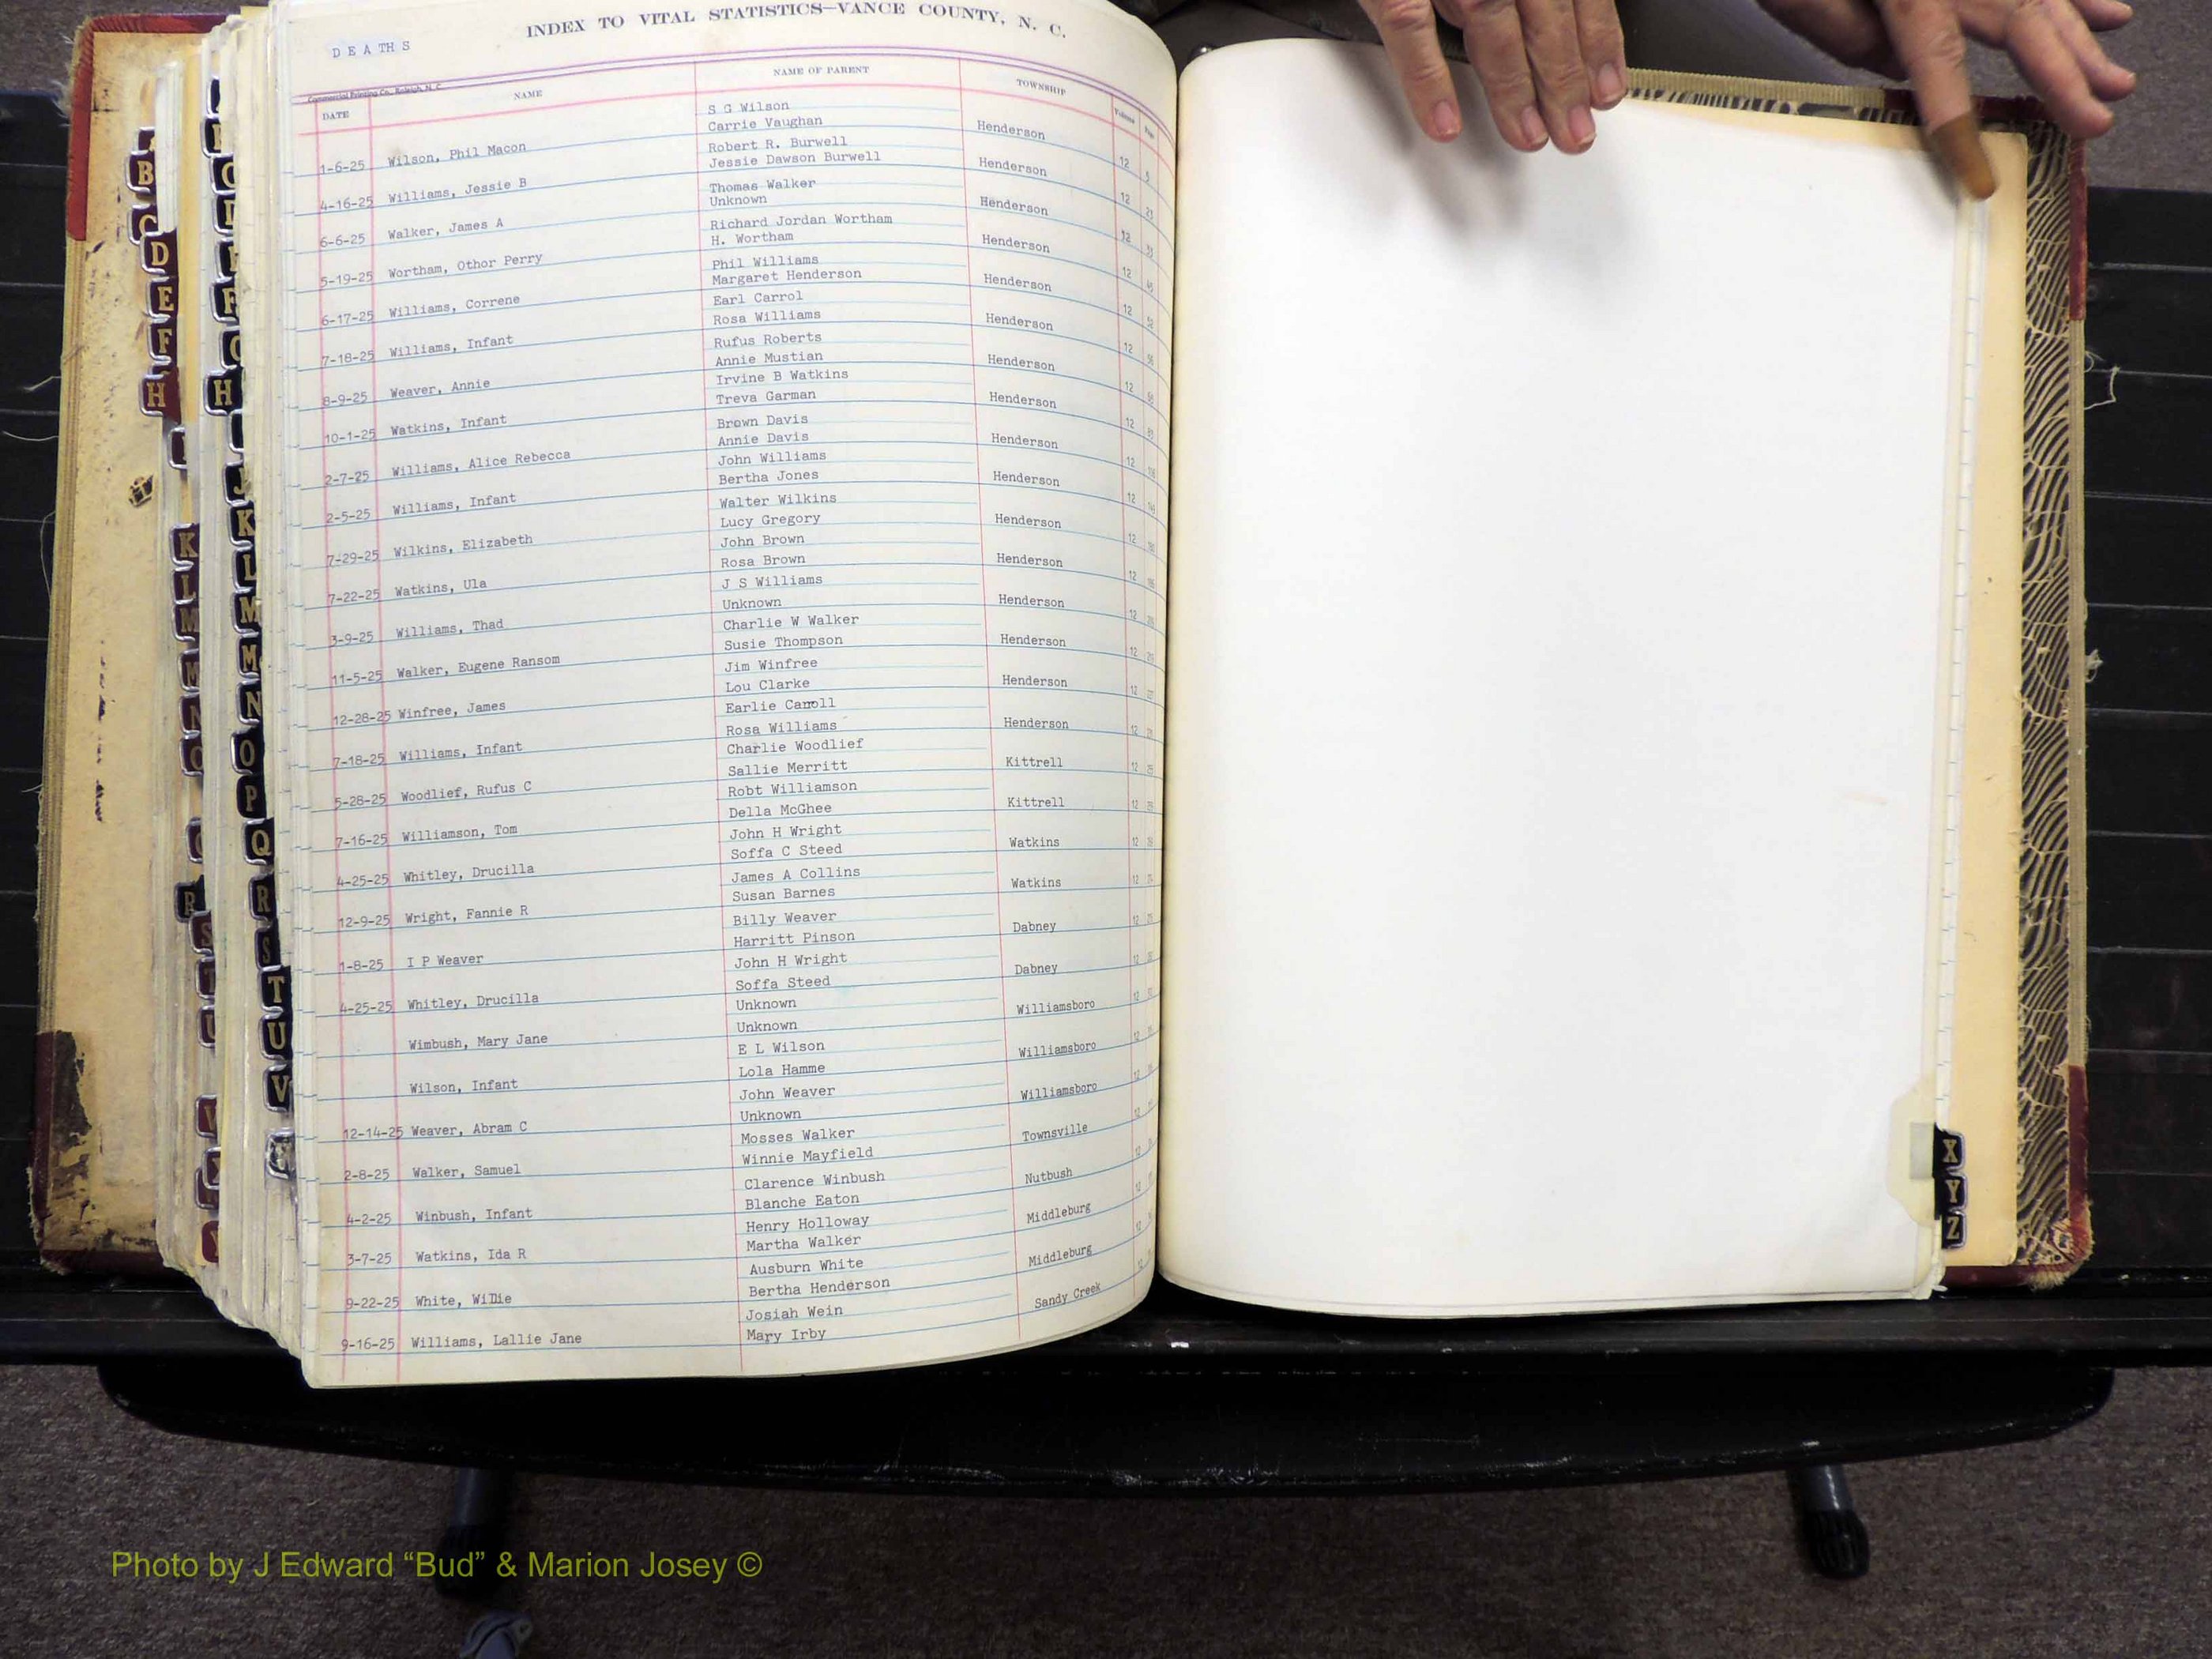 INDEX TO VITAL STATISTICS—VANCE COUNTY, N. C.
DEATHS
Commercial Printing Co., Raleigh, N. C.
DATE NAME NAME OF PARENT TOWNSHIP Volume Page
S G Wilson
1-6-25 Wilson, Phil Macon Carrie Vaughan Henderson 12 5
Robert R. Burwell
4-16-25 Williams, Jessie B Jessie Dawson Burwell Henderson 12
Thomas Walker
6-6-25 Walker, James A Unknown Henderson 12
Richard Jordan Wortham
5-19-25 Wortham, Othor Perry H. Wortham Henderson 12
Phil Williams
6-17-25 Williams, Correne Margaret Henderson Henderson 12
Earl Carrol
7-18-25 Williams, Infant Rosa Williams Henderson 12
Rufus Roberts
8-9-25 Weaver, Annie Annie Mustian Henderson 12
Irvine B Watkins
10-1-25 Watkins, Infant Treva Garman Henderson 12
Brown Davis
2-7-25 Williams, Alice Rebecca Annie Davis Henderson 12
John Williams
2-5-25 Williams, Infant Bertha Jones Henderson 12
Walter Wilkins
7-29-25 Wilkins, Elizabeth Lucy Gregory Henderson 12
John Brown
7-22-25 Watkins, Ula Rosa Brown Henderson 12
J S Williams
3-9-25 Williams, Thad Unknown Henderson 12
Charlie W Walker
11-5-25 Walker, Eugene Ransom Susie Thompson Henderson 12
Jim Winfree
12-28-25 Winfree, James Lou Clarke Henderson 12
Earlie Carroll
7-18-25 Williams, Infant Rosa Williams Henderson 12
Charlie Woodlief
5-28-25 Woodlief, Rufus C Sallie Merritt Kittrell 12
Robt Williamson
7-16-25 Williamson, Tom Della McGhee Kittrell 12
John H Wright
4-25-25 Whitley, Drucilla Soffa C Steed Watkins 12
James A Collins
12-9-25 Wright, Fannie R Susan Barnes Watkins 12
Billy Weaver
1-8-25 I P Weaver Harritt Pinson Dabney 12
John H Wright
4-25-25 Whitley, Drucilla Soffa Steed Dabney 12
Unknown
Wimbush, Mary Jane Unknown Williamsboro 12
E L Wilson
Wilson, Infant Lola Hamme Williamsboro 12
John Weaver
12-14-25 Weaver, Abram C Unknown Williamsboro 12
Mosses Walker
2-8-25 Walker, Samuel Winnie Mayfield Townsville 12
Clarence Winbush
4-2-25 Winbush, Infant Blanche Eaton Nutbush 12
Henry Holloway
3-7-25 Watkins, Ida R Martha Walker Middleburg 12
Ausburn White
9-22-25 White, Willie Bertha Henderson Middleburg 12
Josiah Wein
9-16-25 Williams, Lallie Jane Mary Irby Sandy Creek 12
B
C
D
E
F
H
K
L
M
M
N
O
R
S
T
U
H
J
K
L
M
M
N
O
P
Q
R
S
T
U
V
X
Y
Z
Photo by J Edward “Bud” & Marion Josey ©